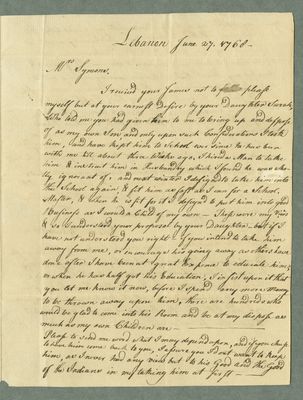 Lebanon June 27. 1768 —
Mrs Symons.
I recievd your James not to please
myself but at your earnest desire by your Daughter Sarah,
who told me you had given him to me to bring up and dispose
of as my own Son and only upon such Consideration I took
him, and have kept him to School ever since he has been
with me till about three Weeks ago, I hired a Man to take
him & instruct him in Husbandry which I found he was whol-
ly ignorant of, and next winter I designd to take him into
the School again & fit him as fast as I can for a School-
Master, & when he is fit for it I designd to put him into good
Business as I would a Child of my own — These were my Views
& so I understood your proposal by your Daughter but if I
have not understood you right & you intend to take him
away from me, or encourage his going away as others have
done after I have been at great Expence to educate him,
or when he has half got his Education, I insist upon it that
you let me know it now, before I spend any more money
to be thrown away upon him, there are hundreds who
would be glad to come into his Room and be at my dispose as
much as my own Children are —
Please to send me word what I may depend upon, and if you chuse
to have him come back to you, I assure you I do not want to keep
him, as I never had any view but to his Good and the Good
of the Indians in my taking him at first —